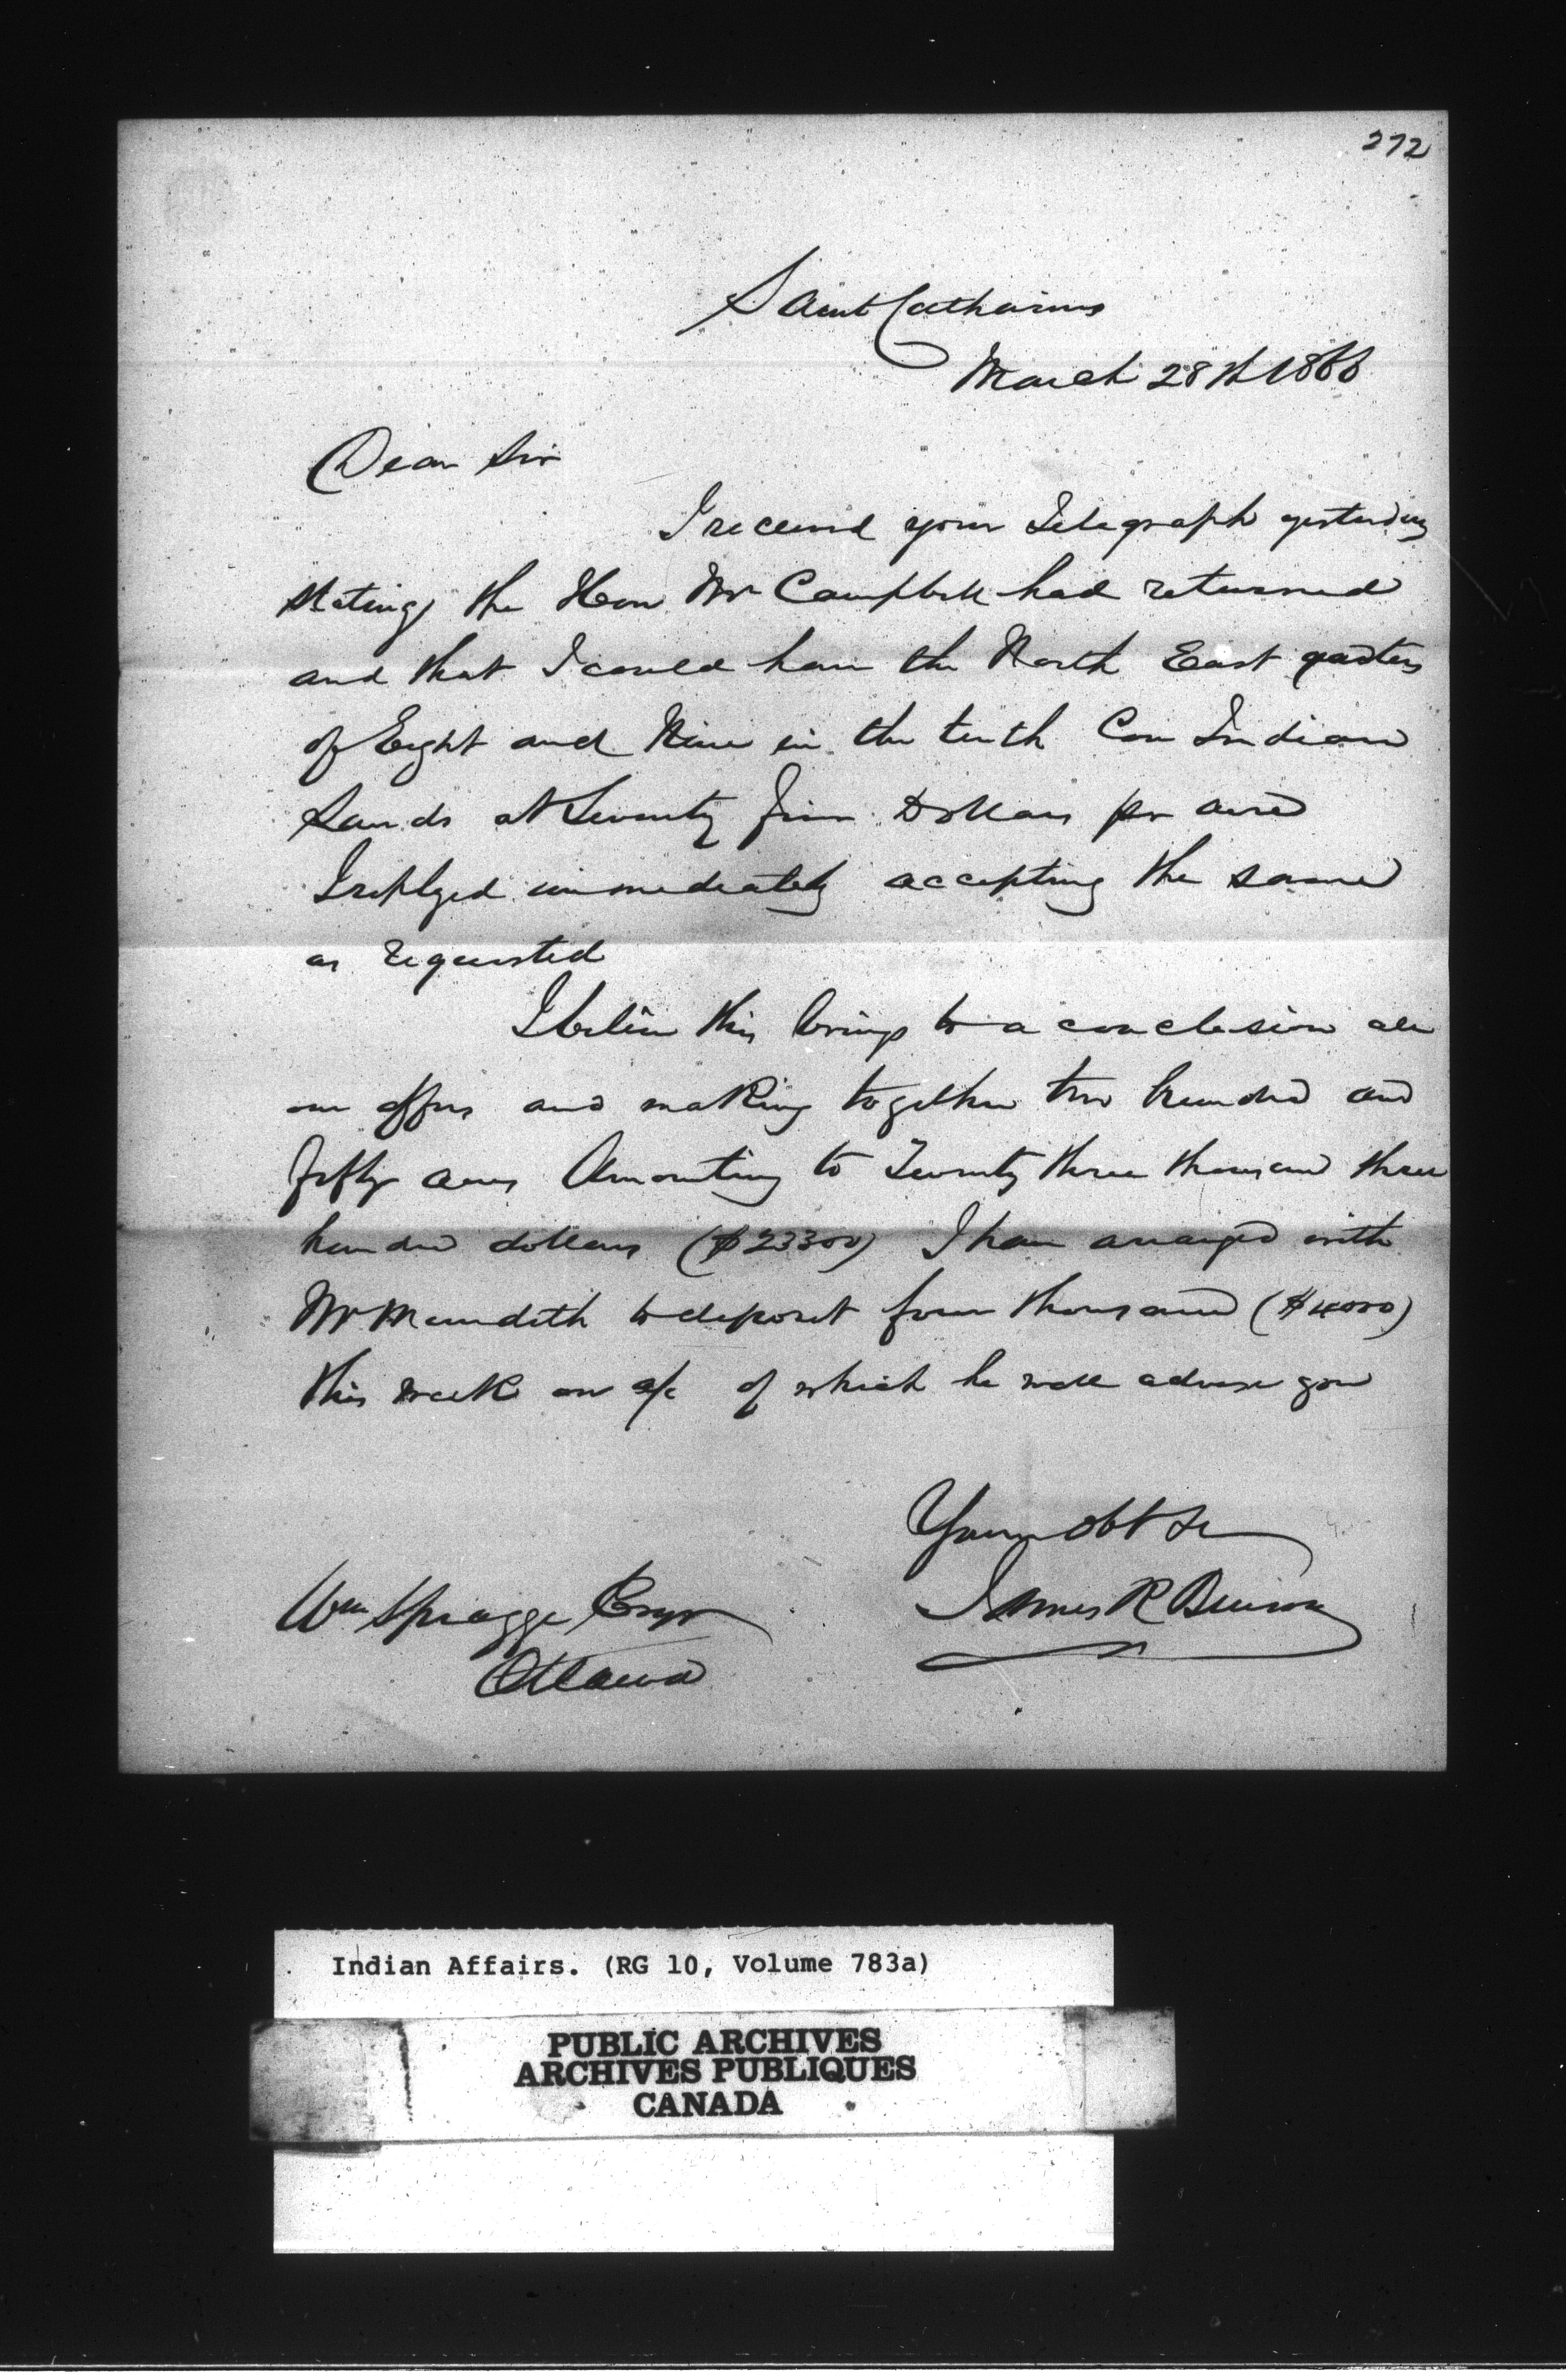 272
Saint Catharines
March 28th 1866
Dear Sir
I received your Telegraph yesterday
stating the Hon Mr Campbell had returned
and that I could have the North East quarters
of Eight and Nine in the tenth Con Indian
Lands at Seventy five Dollars per acre
I replyed immediately accepting the same
as requested
I believe this brings to a conclusion all
our offers and making together two hundred and
fifty acres Amounting to Twenty three thousand three
hundred dollars ($23300) I have arranged with
Mr Meredith to deposit four thousand ($4000)
this week on a/c of which he will advise you
Your obt Sr
James R
Wm Spragge Esqr
Ottawa
Indian Affairs. (RG 10, Volume 783a)
PUBLIC ARCHIVES
ARCHIVES PUBLIQUES
CANADA